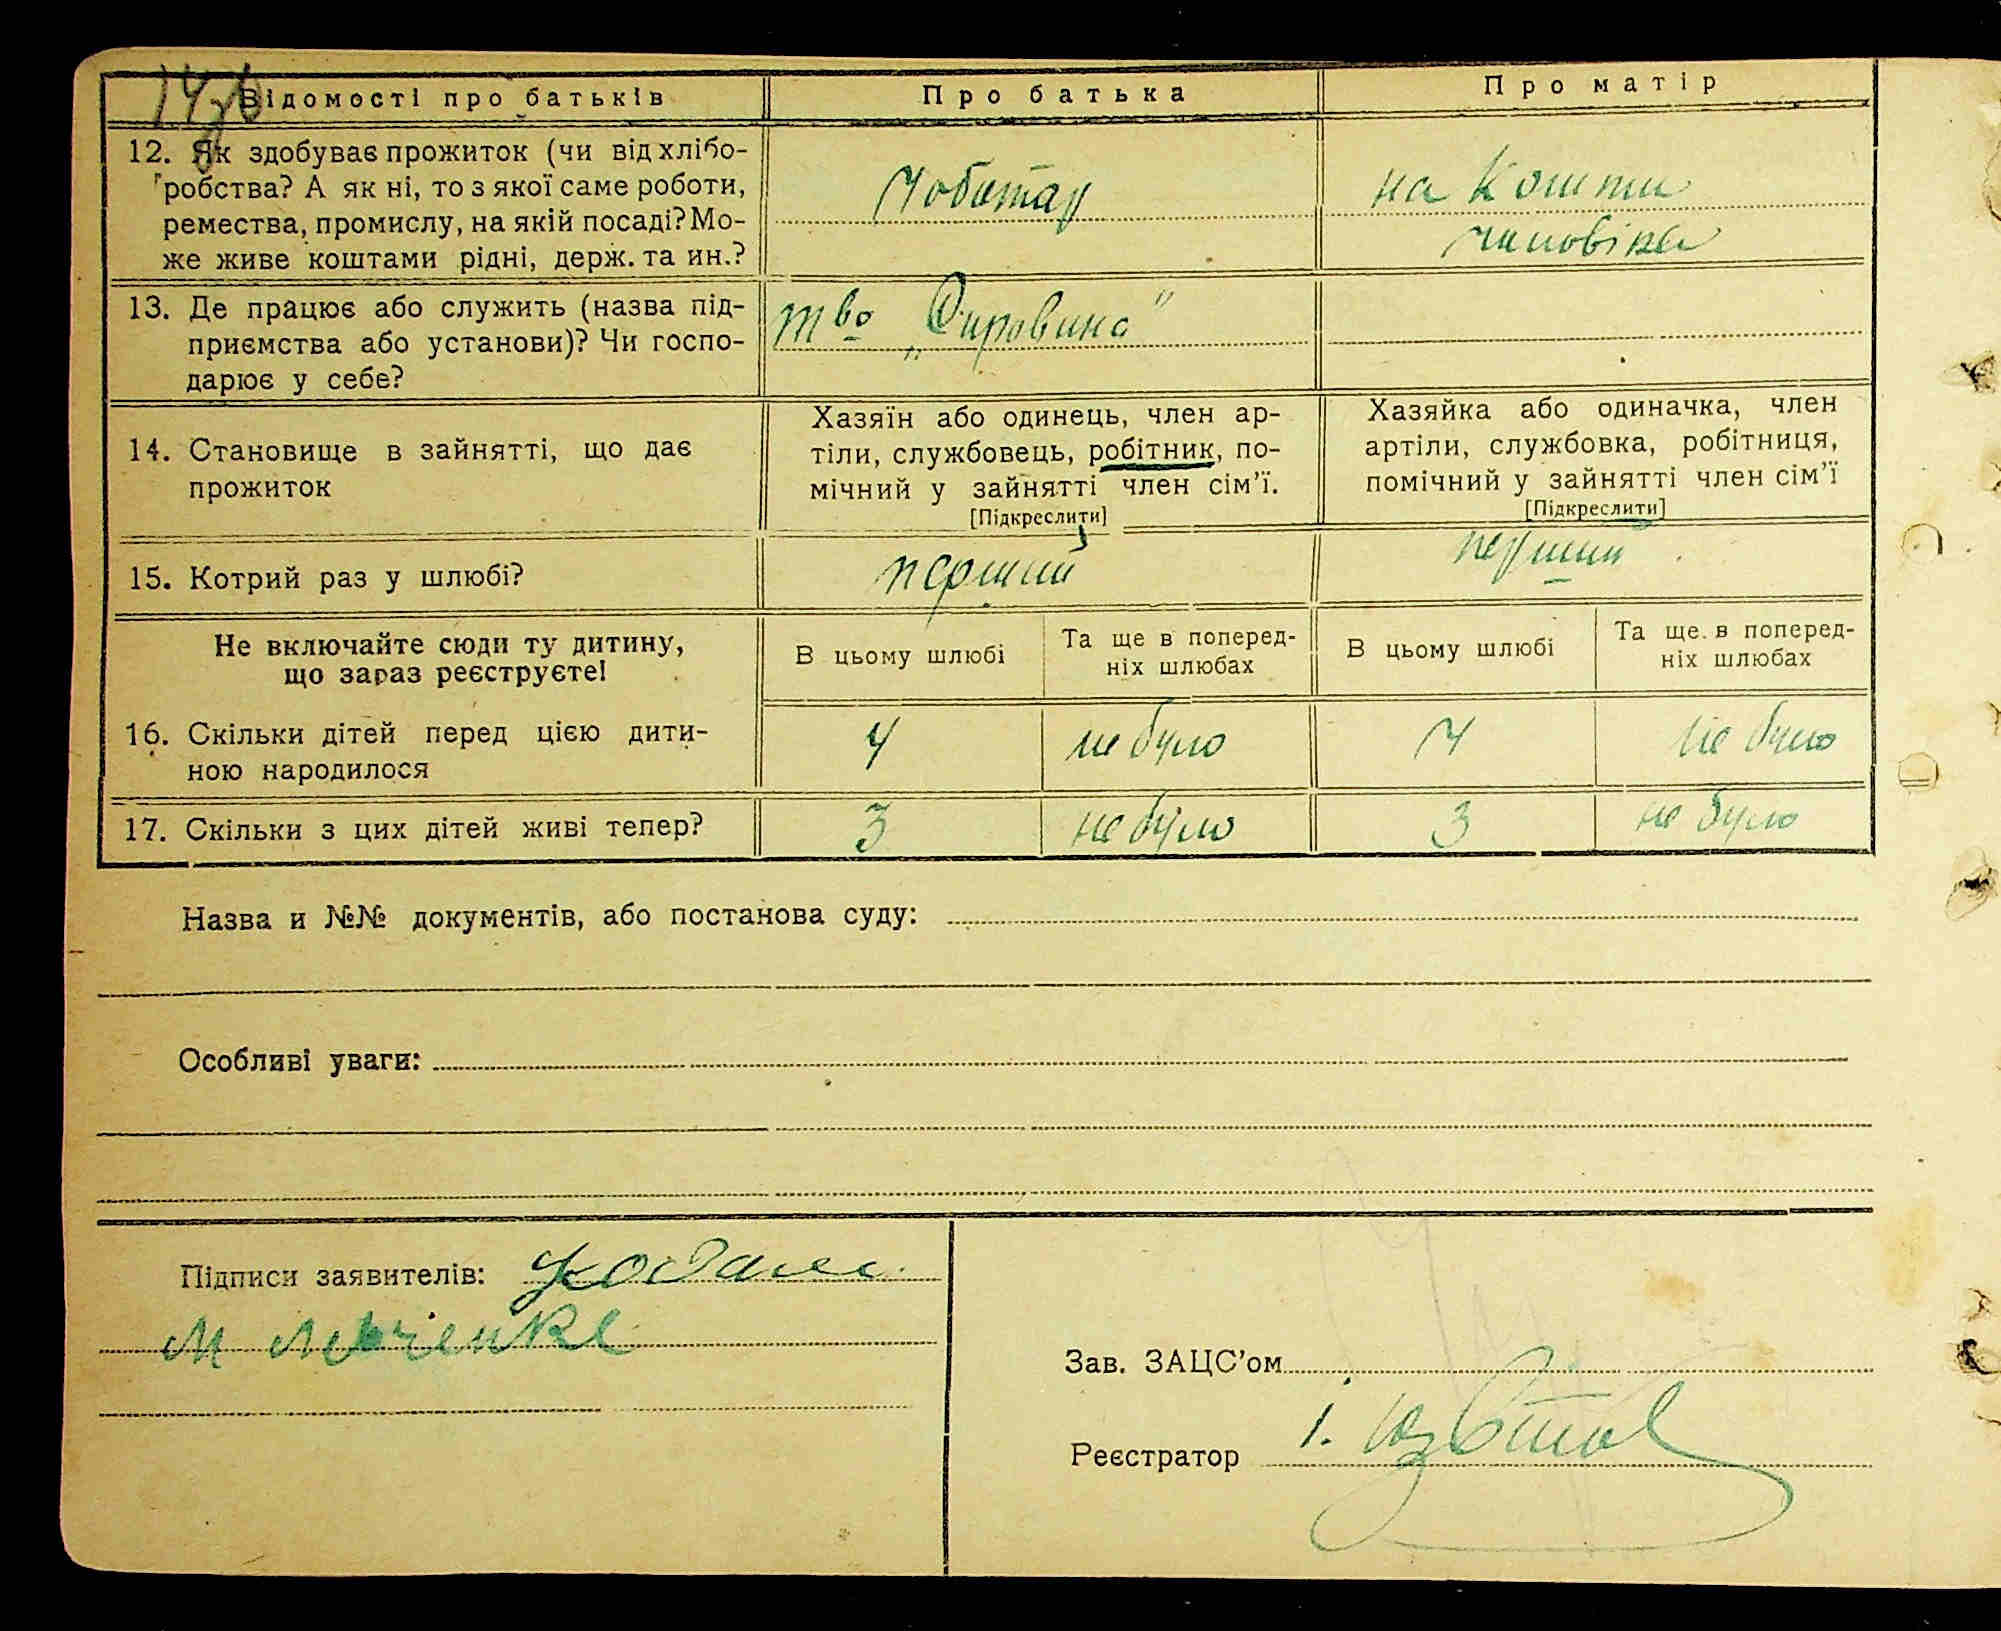 Відомості про батьків
Про батька
Про матір
12. Як здобуває прожиток (чи від хлібо-
робства? А як ні, то з якої саме роботи,
ремества, промислу, на якій посаді? Мо-
же живе коштами рідні, держ. та ин.?
Чоботар
на кошти
чиловіка
13. Де працює або служить (назва під-
приємства або установи)? Чи госпо-
дарює у себе?
т во „Сировина"
14. Становище в зайнятті, що дає
прожиток
Хазяїн або одинець, член ар-
тіли, службовець, робітник, по-
мічний у зайнятті член сім'ї.
[Підкреслити]
Хазяйка або одиначка, член
артіли, службовка, робітниця,
помічний у зайнятті член сім'ї
[Підкреслити]
15. Котрий раз у шлюбі?
перший
перший
Не включайте сюди ту дитину,
що зараз реєструєте!
В цьому шлюбі
Та ще в поперед-
ніх шлюбах
В цьому шлюбі
Та ще в поперед-
ніх шлюбах
16. Скільки дітей перед цією дити-
ною народилося
4
не було
4
не було
17. Скільки з цих дітей живі тепер?
3
не було
3
не було
Назва и №№ документів, або постанова суду:
Особливі уваги:
Підписи заявителів:
М
Зав. ЗАЦС'ом
Реєстратор
І.